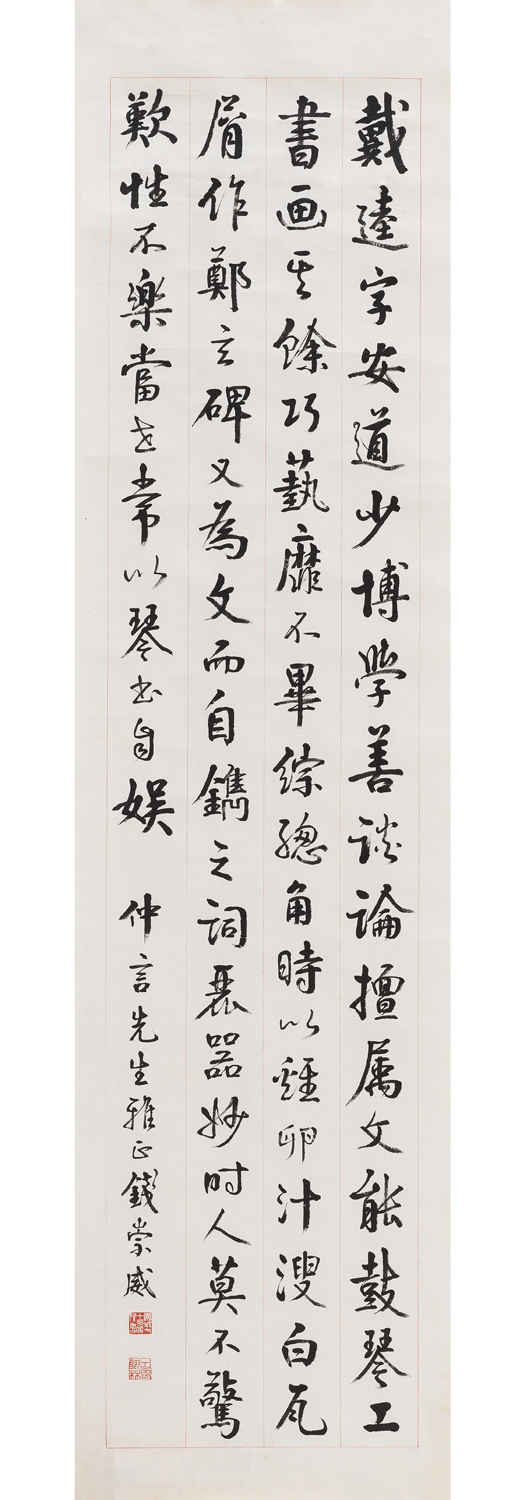 戴逵字安道少博學善談論擅属文能鼓琴工
書画其餘巧蓺靡不畢綜總角時以雞卵汁溲白瓦
屑作鄭玄碑又為文而自鐫之詞麗器妙时人莫不驚
歎性不樂當世常以琴书自娛 仲言先生雅正錢崇威